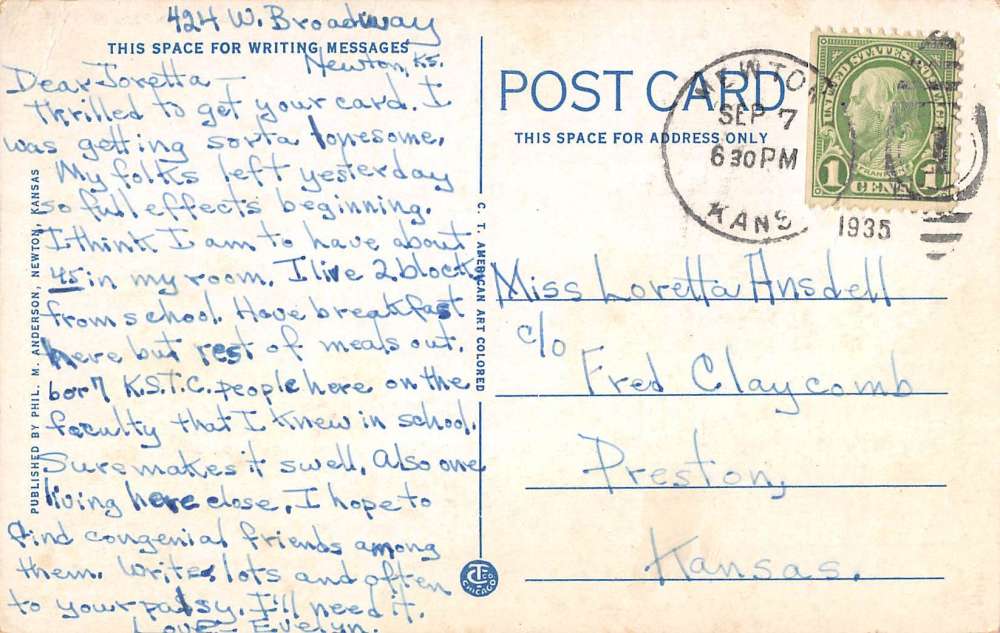 424 W. Broadway
THIS SPACE FOR WRITING MESSAGES
Newton, Ks.
Dear Loretta —
Thrilled to get your card. I
was getting sorta lonesome.
My folks left yesterday
so full effects beginning.
I think I am to have about
45 in my room. I live 2 block
from school. Have breakfast
here but rest of meals out.
6 or 7 K.S.T.C. people here on the
faculty that I knew in school.
Sure makes it swell. Also one
living here close. I hope to
find congenial friends among
them. Write lots and often
to your palsy. I'll need it.
Love – Evelyn.
PUBLISHED BY PHIL. M. ANDERSON, NEWTON, KANSAS
C. T. AMERICAN ART COLORED
CHICAGO
POST CARD
THIS SPACE FOR ADDRESS ONLY
NEWTON
SEP 7
6 30 PM
KANS
1935
UNITED STATES POSTAGE
FRANKLIN
1 CENT 1
Miss Loretta Ansdell
c/o
Fred Claycomb
Preston,
Kansas.